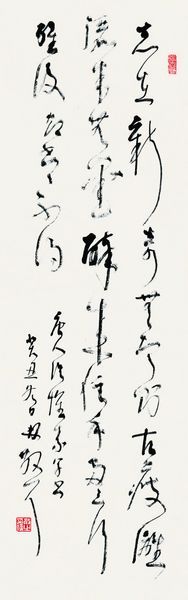 志在新奇無定則古瘦灕
驪半無墨醉來信手兩三行
醒後却書書不得
唐人詠懷素草書
癸丑冬日林散耳